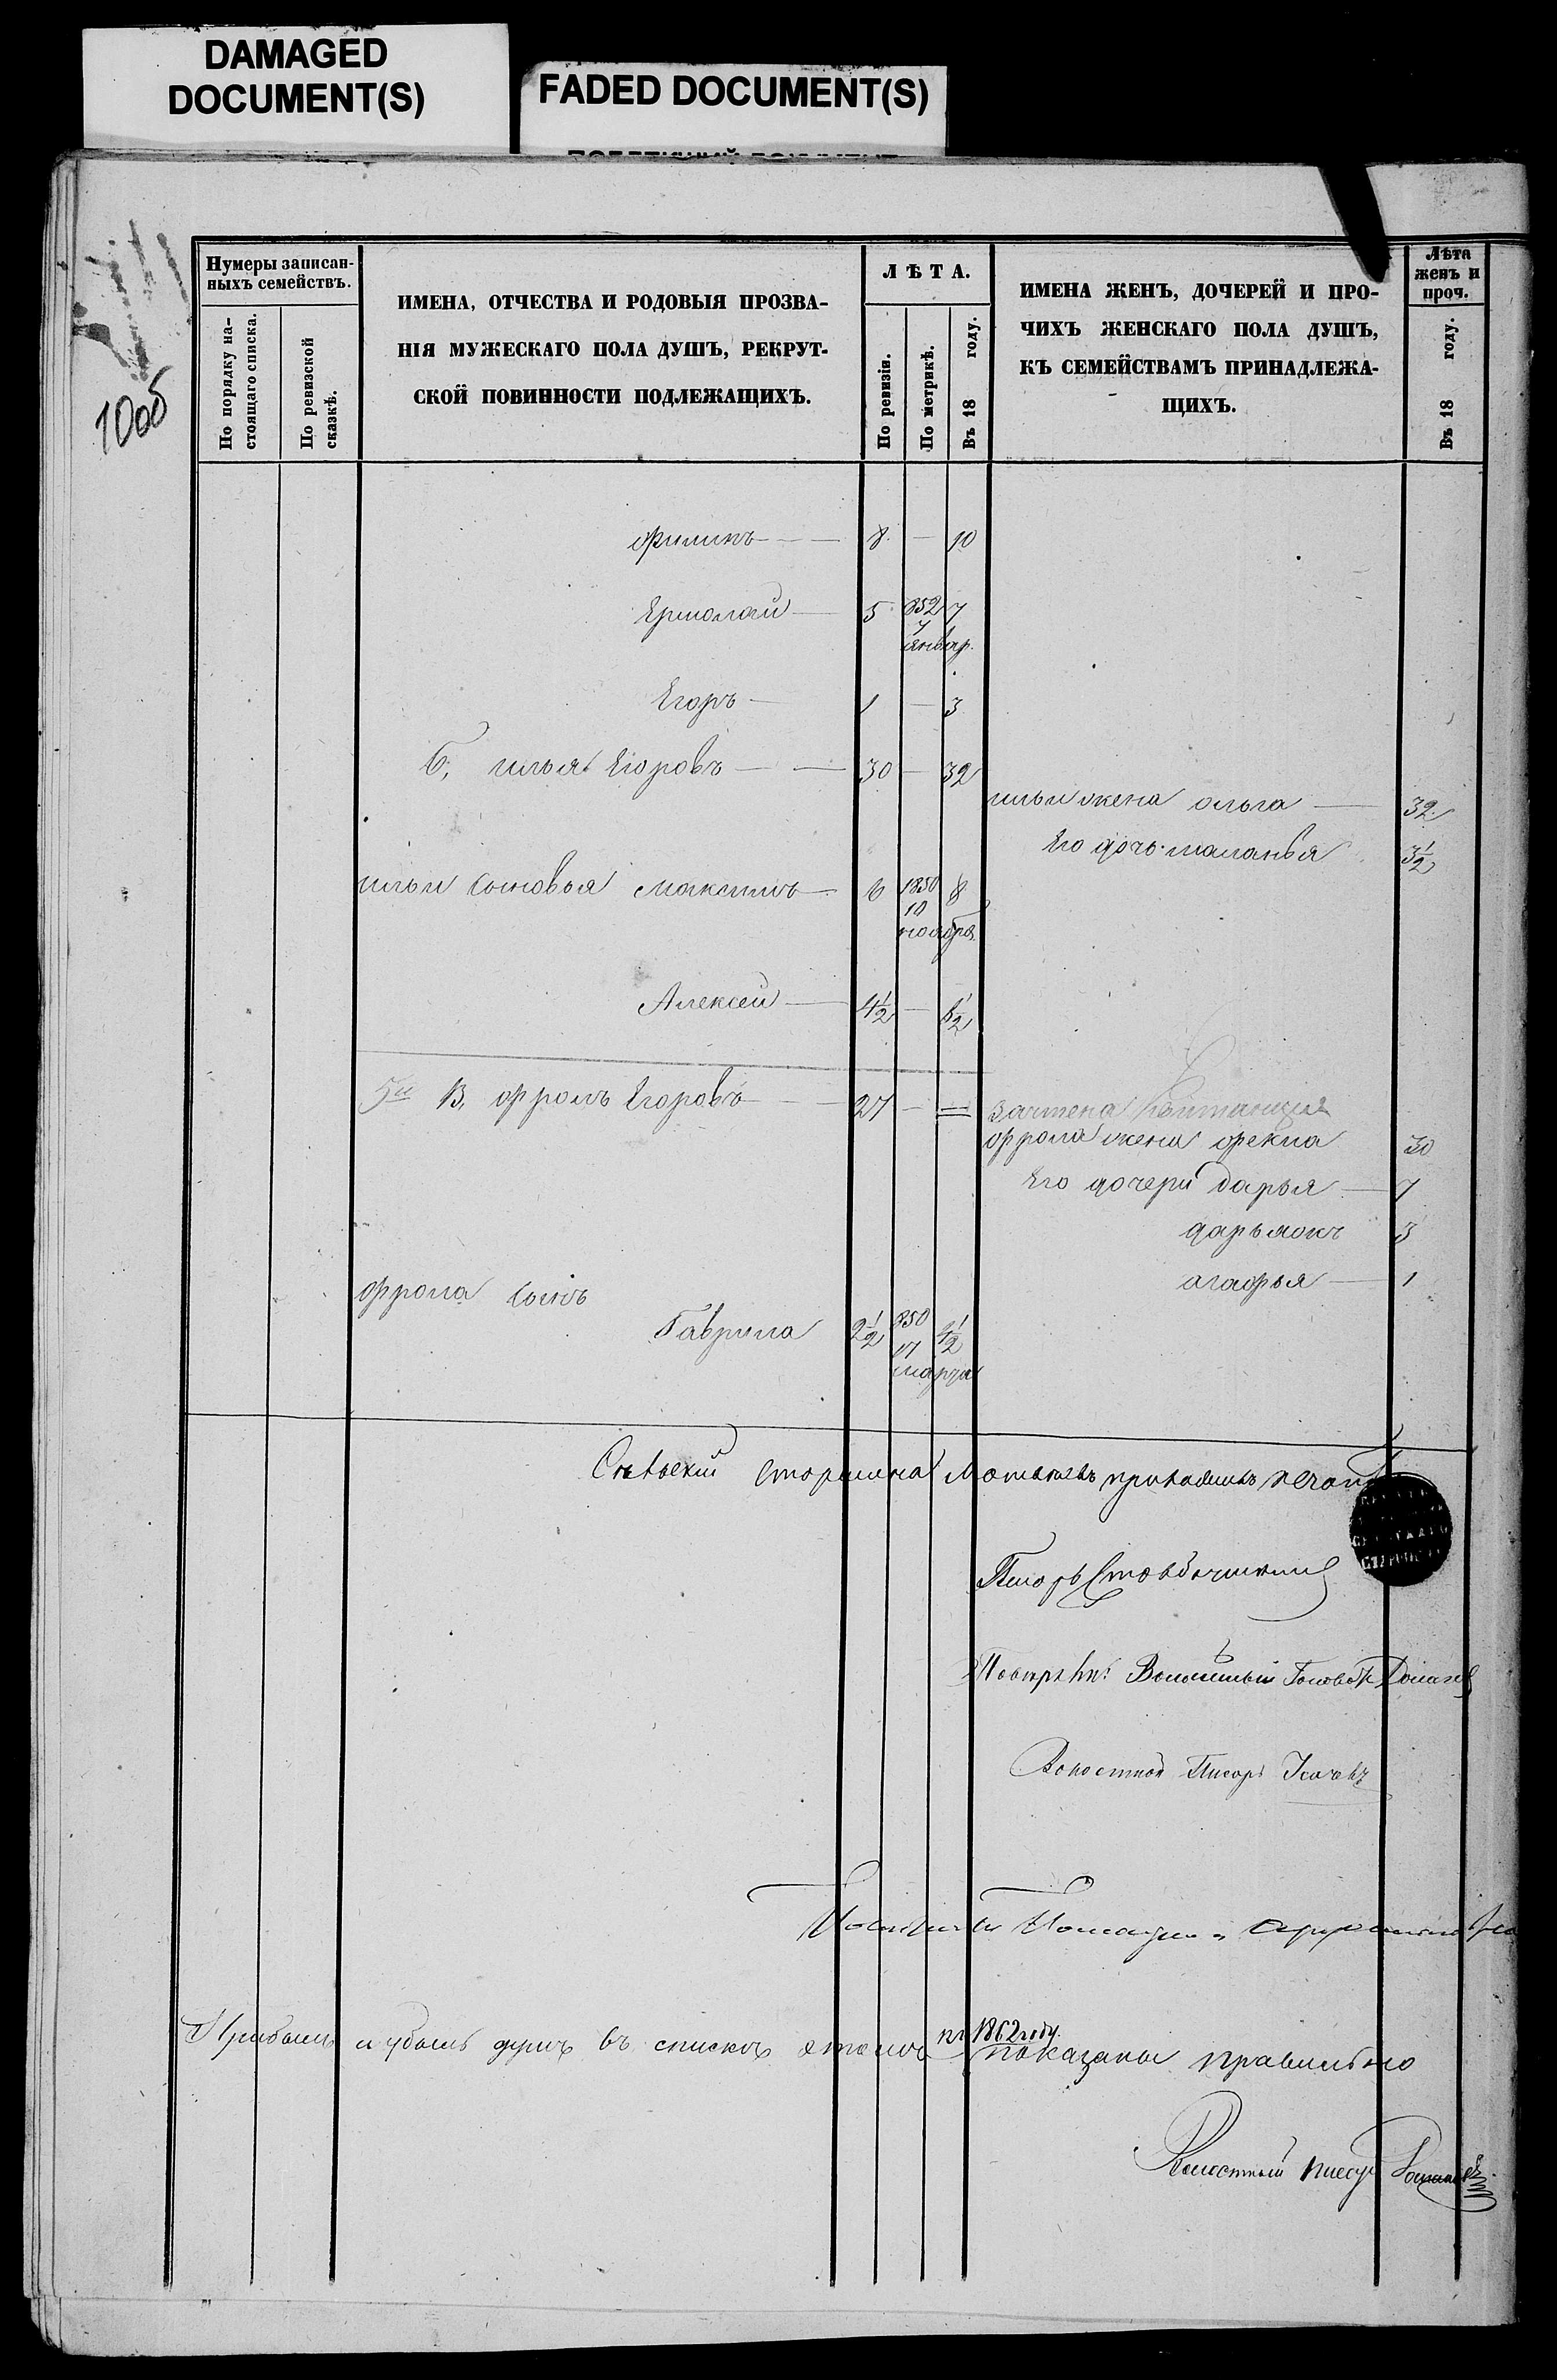 DAMAGED
DOCUMENT(S)
FADED DOCUMENT(S)
100б
Нумеры записан-
ныхъ семействъ.
По порядку на-
стоящаго списка.
По ревизской
сказкѣ.
ИМЕНА, ОТЧЕСТВА И РОДОВЫЯ ПРОЗВА-
НІЯ МУЖЕСКАГО ПОЛА ДУШЪ, РЕКРУТ-
СКОЙ ПОВИННОСТИ ПОДЛЕЖАЩИХЪ.
ЛѢТА.
По ревизіи.
По метрикѣ.
Въ 18 году.
ИМЕНА ЖЕНЪ, ДОЧЕРЕЙ И ПРО-
ЧИХЪ ЖЕНСКАГО ПОЛА ДУШЪ,
КЪ СЕМЕЙСТВАМЪ ПРИНАДЛЕЖА-
ЩИХЪ.
Лѣта
женъ и
проч.
Въ 18 году.
Филипъ — 8 — 10
Ермолай — 5 852 7
7
январ.
Егоръ — 1 — 3
Б, илья Егоровъ — 30 — 32
ильи жена ольга — 32
Его дочь маланья 3½
ильи сыновья максимъ — 6 1850 8
10
ноября
Алексей — 4½ — 6½
В, фролъ Егоровъ — 27 — =
зачтена квитанция
фрола жена фекла 30
Его дочери дарья — 7
дарья ж 3
агафья — 1
фрола сынъ
Гаврила 2½ 850 4½
17
марта
Сельский старшина приложилъ печать
Писарь
Волостный Голова
Волостной Писарь
Прибыль и убыль душъ въ списке этомъ по 1862 году
показаны правильно
Волостный писарь